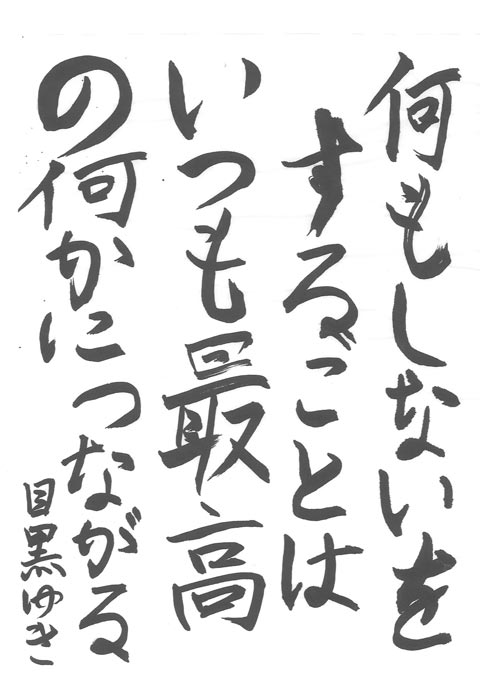 何もしないを
することは
いつも最高
の何かにつながる
目黒ゆき